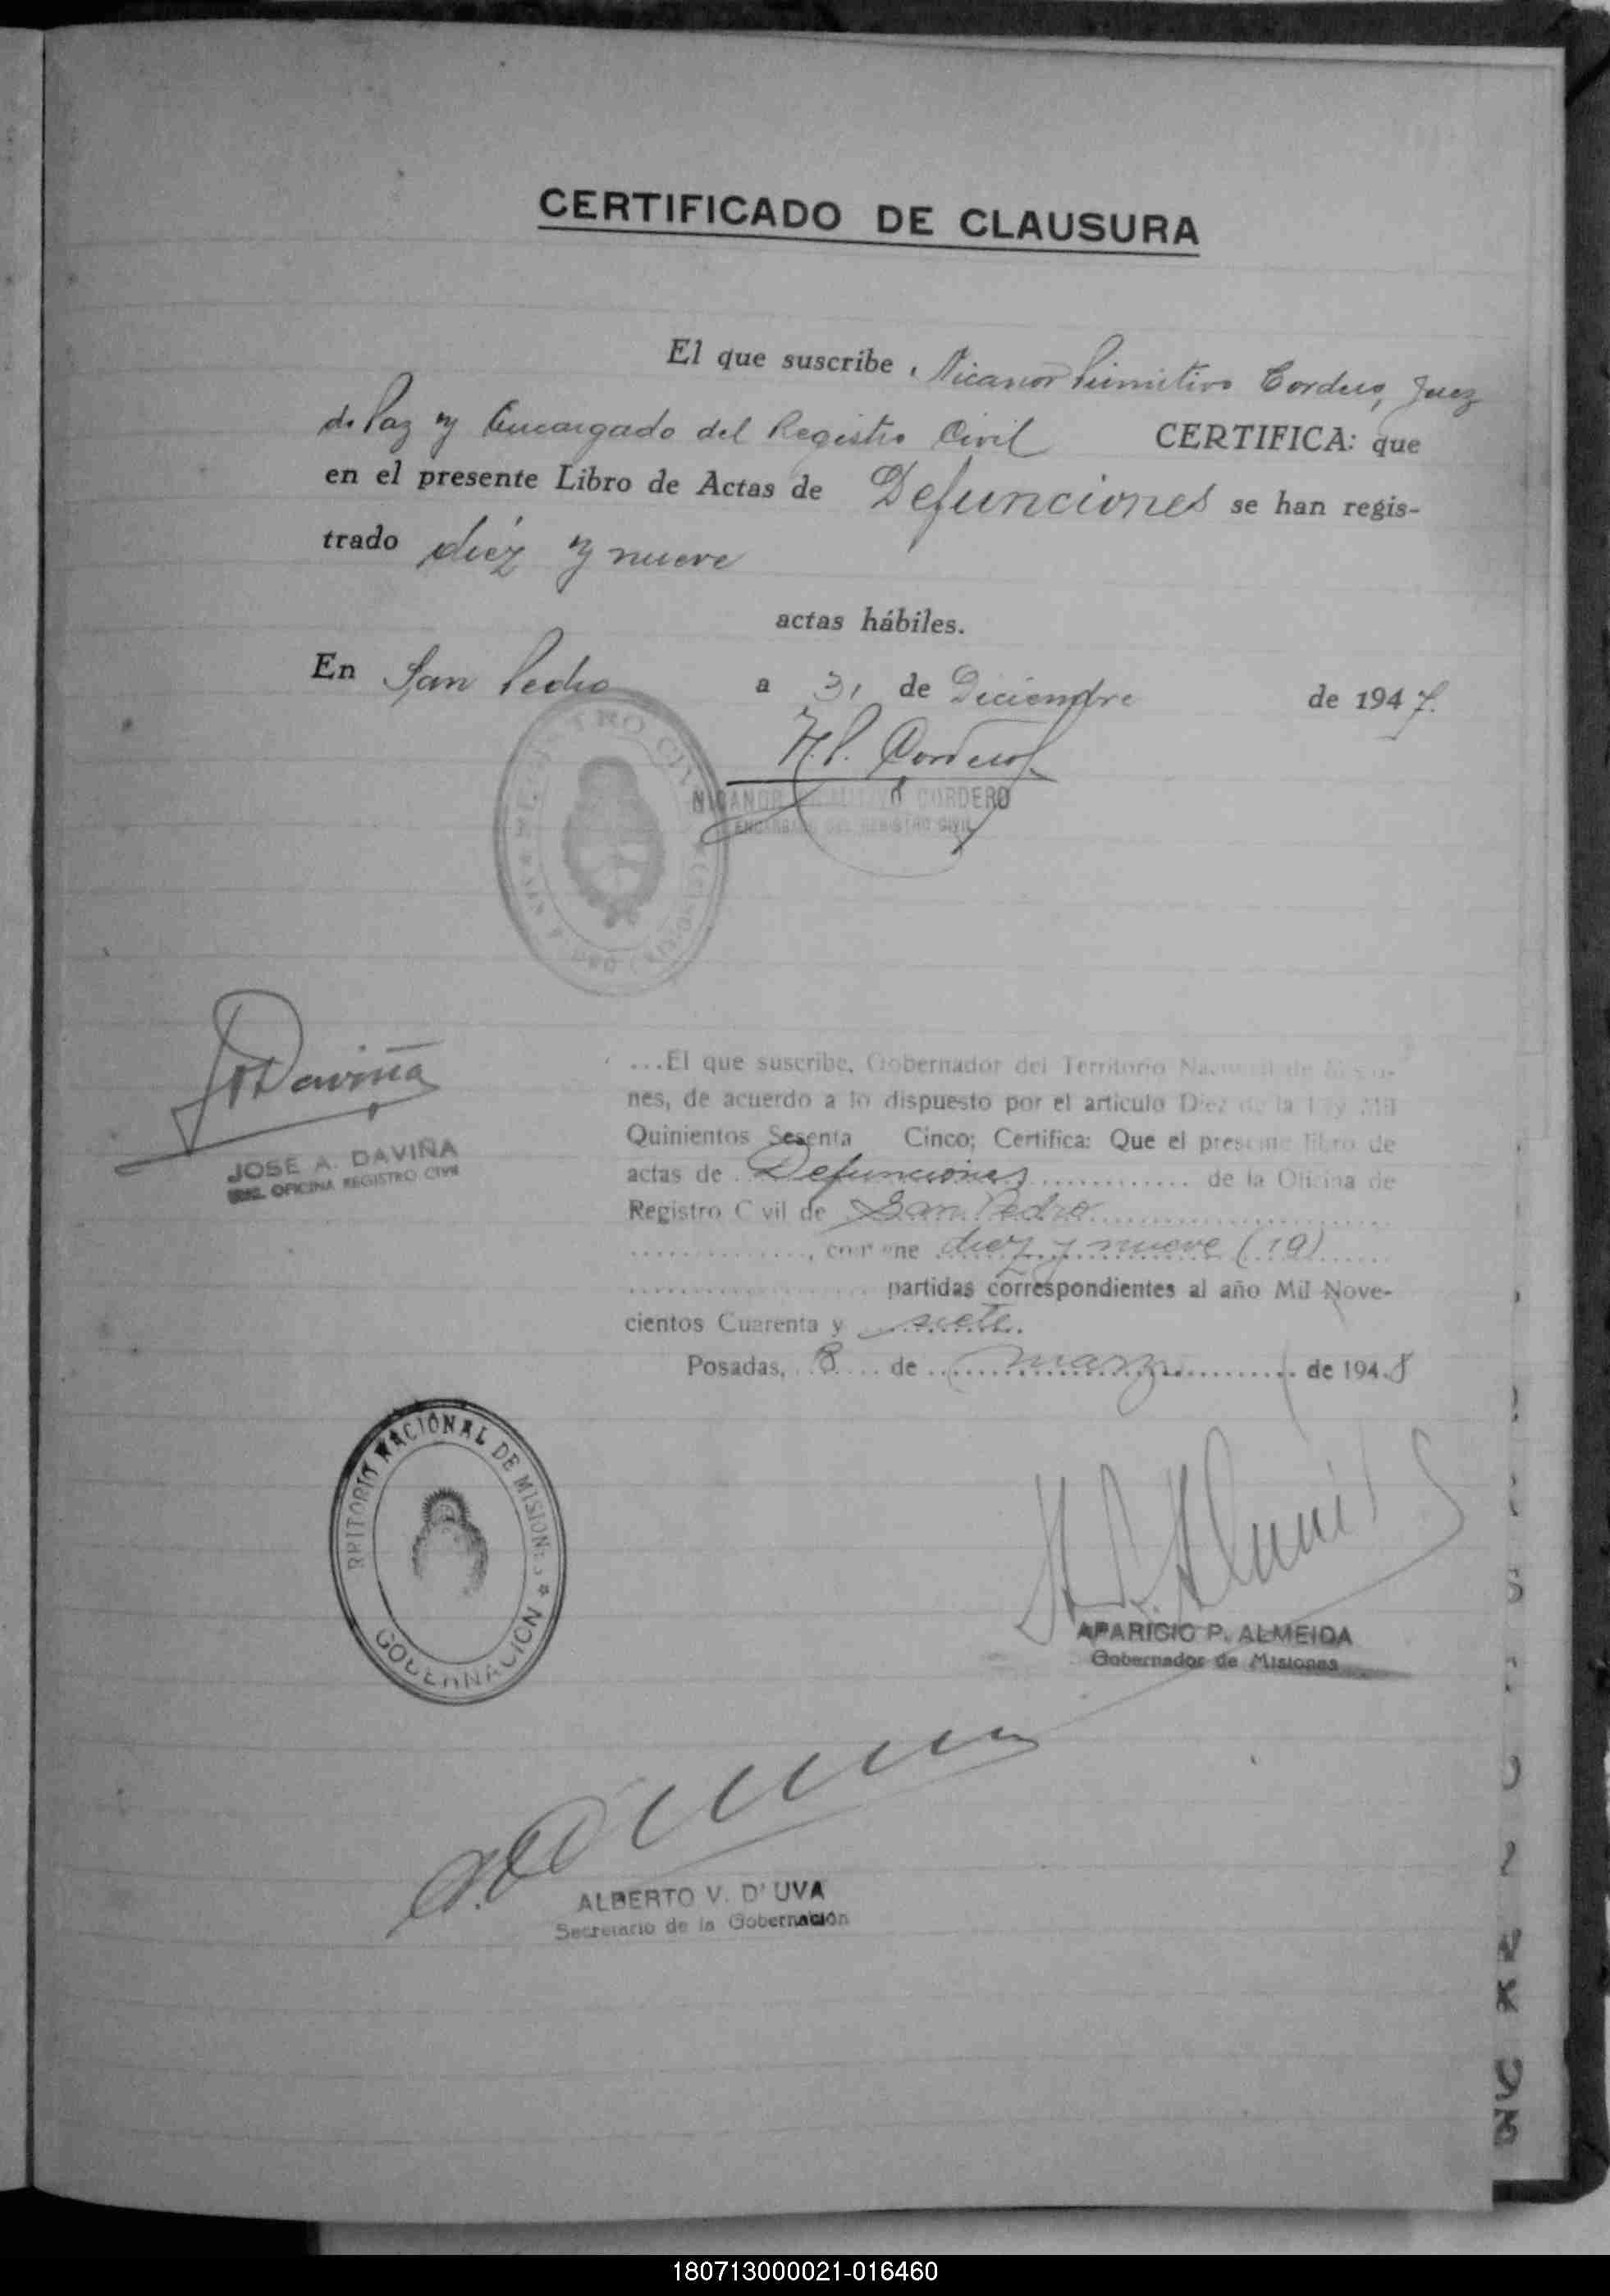 CERTIFICADO DE CLAUSURA
El que suscribe, Nicanor Primitivo Cordero, Juez
de Paz y Encargado del Registro Civil CERTIFICA: que
en el presente Libro de Actas de Defunciones se han regis-
trado diez y nueve
actas hábiles.
En San Pedro a 31 de Diciembre de 1947.
N.P. Cordero
NICANOR PRIMITIVO CORDERO
ENCARGADO DEL REGISTRO CIVIL
J A Daviña
JOSE A. DAVIÑA
OFICINA REGISTRO CIVIL
...El que suscribe, Gobernador del Territorio Nacional de Misio-
nes, de acuerdo a lo dispuesto por el articulo Diez de la Ley Mil
Quinientos Sesenta Cinco; Certifica: Que el presente libro de
actas de Defunciones de la Oficina de
Registro Civil de San Pedro
, contiene diez y nueve (19)
partidas correspondientes al año Mil Nove-
cientos Cuarenta y siete.
Posadas, 8 de marzo de 1948
TERRITORIO NACIONAL DE MISIONES
GOBERNACION
APARICIO P. ALMEIDA
Gobernador de Misiones
ALBERTO V. D'UVA
Secretario de la Gobernación
180713000021-016460